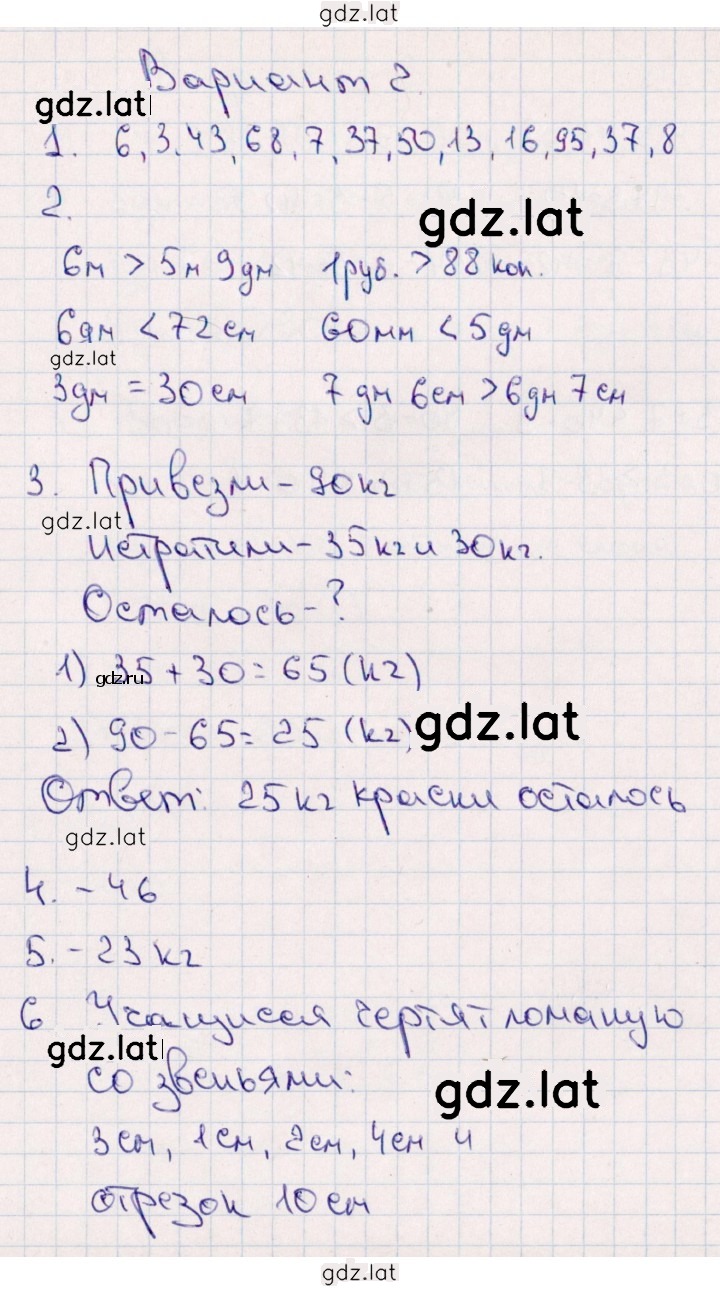 gdz.lat
Вариант 2.
gdz.lat
1. 6, 3, 43, 68, 7, 37, 50, 13, 16, 95, 37, 8
2.
gdz.lat
6м > 5м 9дм 1руб. > 88 коп.
6дм < 72 см 60мм < 5дм
gdz.lat
3дм = 30см 7 дм 6см > 6дм 7см
3. Привезли - 90кг
gdz.lat
Истратили - 35кг и 30кг.
Осталось - ?
1) 35 + 30 = 65 (кг)
gdz.ru
2) 90 - 65 = 25 (кг)
gdz.lat
Ответ: 25кг краски осталось
gdz.lat
4. - 46
5. - 23 кг
6 Учащиеся чертят ломаную
gdz.lat
со звеньями:
gdz.lat
3см, 1см, 2см, 4см и
отрезок 10см
gdz.lat